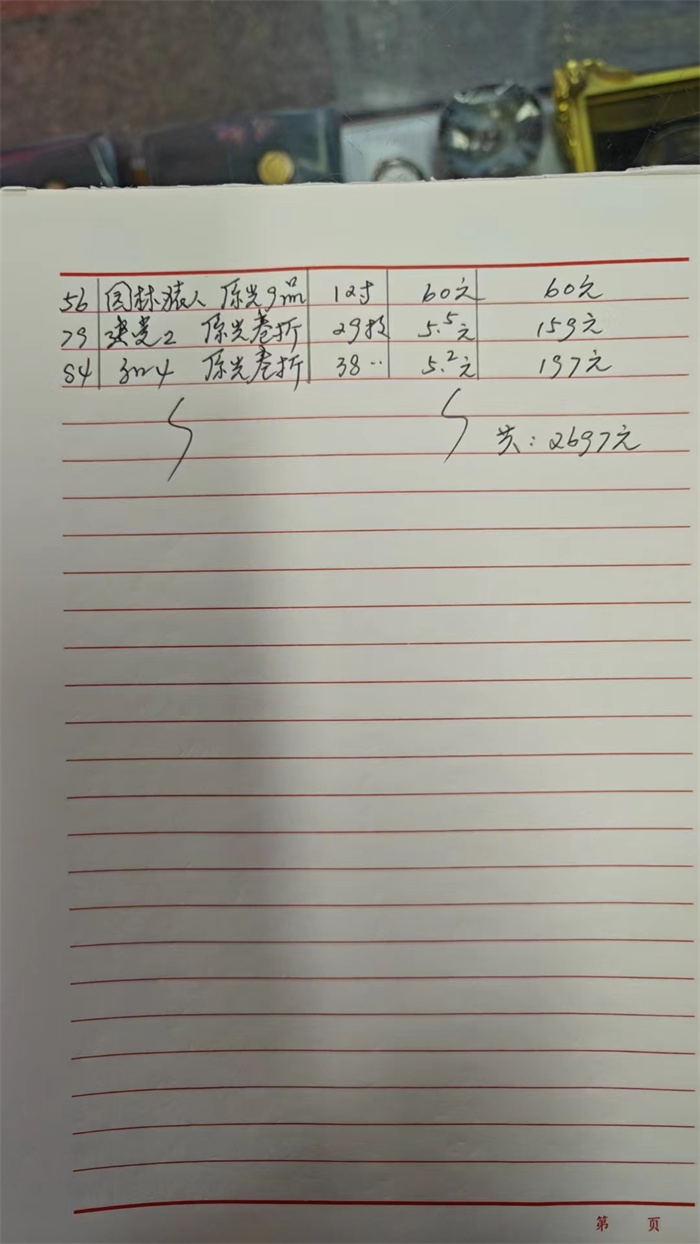 56 园林猿人 原光9品 12寸 60元 60元
79 建党2 原光卷折 29枚 5.5元 159元
84 3m4 原光卷折 38‥ 5.2元 197元
共:2697元
第 页